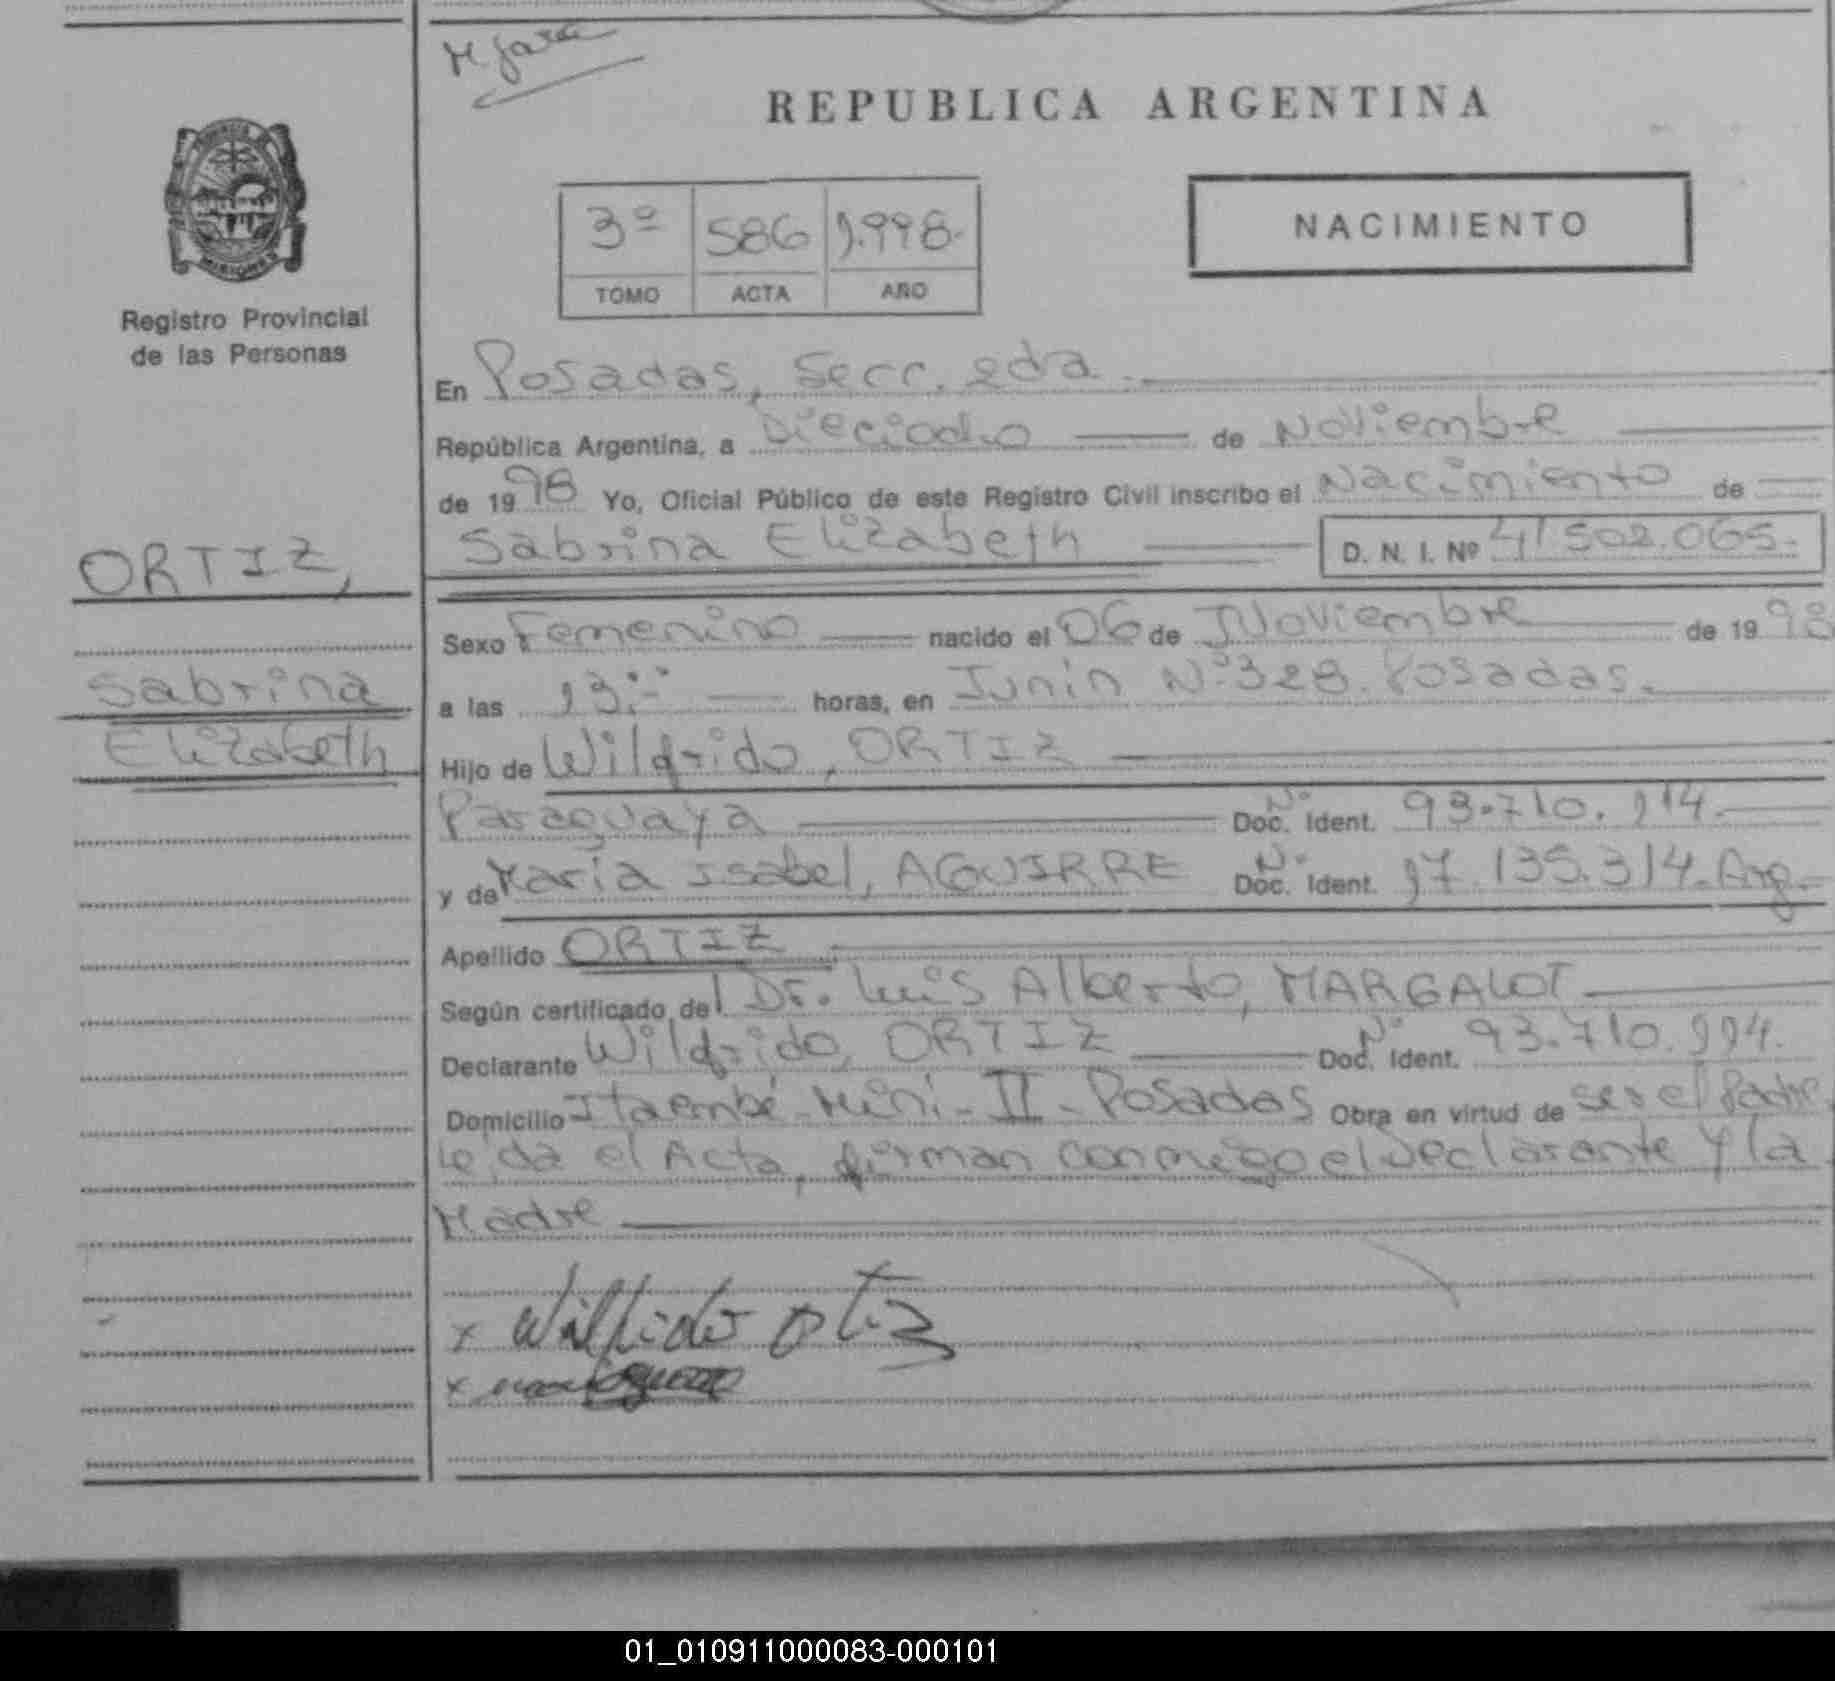 REPUBLICA ARGENTINA
MISIONES
Registro Provincial
de las Personas
3º 586 1.998.
TOMO ACTA AÑO
NACIMIENTO
En Posadas, Secc. 2da.
República Argentina, a Dieciocho de Noviembre
de 1998 Yo, Oficial Público de este Registro Civil inscribo el Nacimiento de
Sabrina Elizabeth D. N. I. Nº 41 502.065.
ORTIZ,
Sabrina
Elizabeth
Sexo Femenino nacido el 06 de Noviembre de 1998
a las 13:- horas, en Junín Nº 328. Posadas.
Hijo de Wilfrido, ORTIZ
Paraguaya Nº Doc. Ident. 93.710.114.
y de María Isabel, AGUIRRE Nº Doc. Ident. 17.135.314. Arg.
Apellido ORTIZ
Según certificado del Dr. Luis Alberto, MARGALOT
Declarante Wilfrido, ORTIZ Nº Doc. Ident. 93.710.114.
Domicilio Itaembé-Miní-II-Posadas Obra en virtud de ser el Padre.
Leída el Acta, firman conmigo el Declarante y la
Madre
x Wilfrido Ortiz
x
01_010911000083-000101